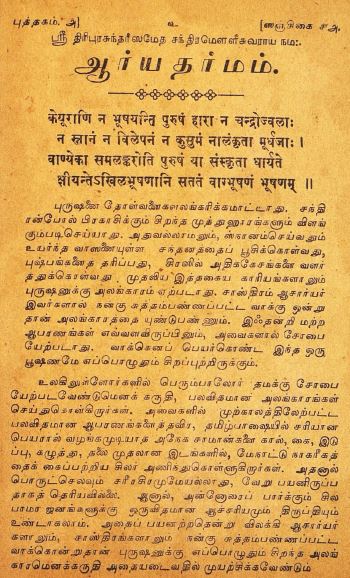 புத்தகம். அ] உ [ஸஞ்சிகை ச-அ.
ஸ்ரீ திரிபுரசுந்தரீஸமேத சந்திரமௌளீசுவராய நம:
ஆர்யதர்மம்.
केयूराणि न भूषयन्ति पुरुषं हारा न चन्द्रोज्ज्वलाः
न स्नानं न विलेपनं न कुसुमं नालंकृता मूर्धजाः ।
वाण्येका समलङ्करोति पुरुषं या संस्कृता धार्यते
क्षीयन्तेऽखिलभूषणानि सततं वाग्भूषणं भूषणम् ॥
புருஷனை தோள்வளைகளலங்கரிக்கமாட்டாது. சந்தி
ரன்போல் பிரகாசிக்கும் சிறந்த முத்துஹாரங்களும் விளங்
கும்படிசெய்யாது. அதுவல்லாமலும், ஸ்நானம்செய்வதும்
உயர்ந்த வாஸனையுள்ள சந்தனத்தைப் பூசிக்கொள்வது,
புஷ்பங்களைத் தரிப்பது, சிரஸில் அதிககேசங்களை வளர்
த்துக்கொள்வது முதலிய இத்தகைய காரியங்களாலும்
புருஷனுக்கு அலங்காரம் ஏற்படாது. சாஸ்திரம் ஆசார்யர்
இவர்களால் நன்கு சுத்தம்பண்ணப்பட்ட வாக்கு ஒன்று
தான் அலங்காரத்தை யுண்டுபண்ணும். இஃதன்றி மற்ற
ஆபரணங்கள் எவ்வளவிருப்பினும், அவைகளால் சோபை
யேற்படாது. வாக்கெனப் பெயர்கொண்ட இந்த ஒரு
பூஷணமே எப்பொழுதும் சிறப்புற்றிருக்கும்.
உலகிலுள்ளோர்களில் பெரும்பாலோர் தமக்கு சோபை
யேற்படவேண்டுமெனக் கருதி, பலவிதமான அலங்காரங்கள்
செய்துகொள்கிறார்கள். அவைகளில் முற்காலத்திலேற்பட்ட
பலவிதமான ஆபரணங்களைத்தவிர, தமிழ்பாஷையில் சரியான
பெயரால் வழங்கமுடியாத அநேக சாமான்களை கால், கை, இடு
ப்பு, கழுத்து, தலை முதலான இடங்களில், மேநாட்டு நாகரீகத்
தைக் கைப்பற்றிய சிலர் அணிந்துகொள்ளுகிறார்கள். அதனால்
பொருட்செலவும் சரீரசிரமமுமேயல்லாது, வேறு பயனிருப்ப
தாகத் தெரியவில்லை. ஆனால், அன்னோரைப் பார்க்கும் சில
பாமர ஜனங்களுக்கு ஒருவிதமான ஆச்சரியமும் திருப்தியும்
உண்டாகலாம். அதைப் பயனற்றதென்று விலக்கி ஆசார்யர்
களாலும், சாஸ்திரங்களாலும் நன்கு சுத்தம்பண்ணப்பட்ட
வாக்கொன்றுதான் புருஷனுக்கு எப்பொழுதும் சிறந்த அலங்
காரமெனக்கருதி அதையடைவதில் முயற்சிக்கவேண்டும்